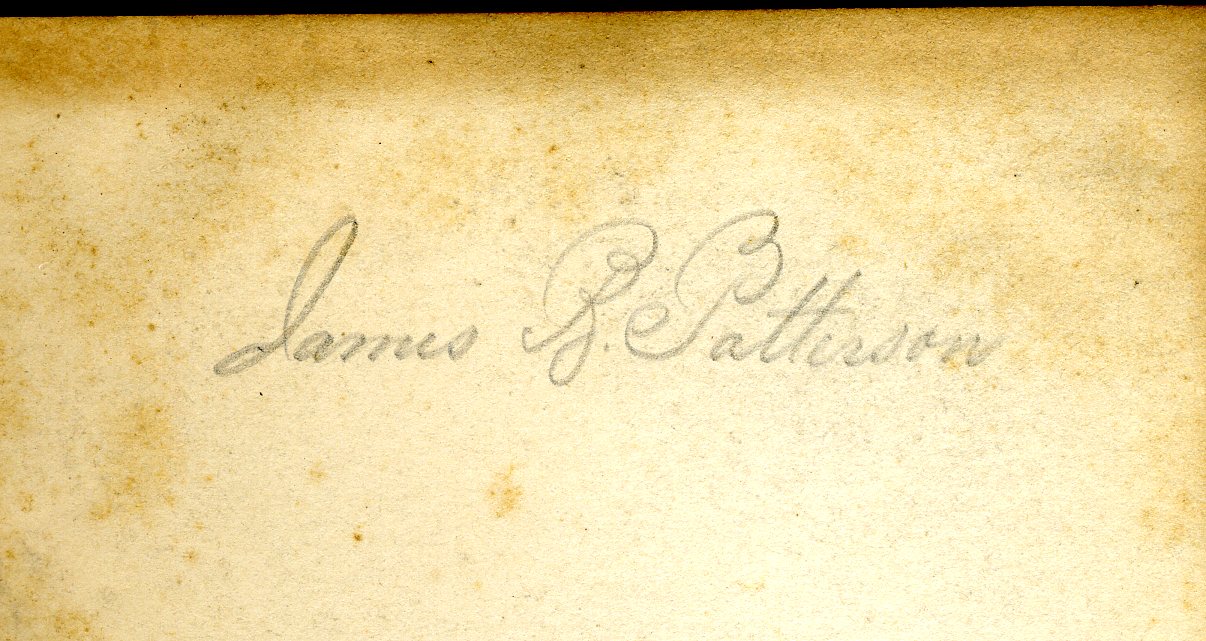 James B. Patterson